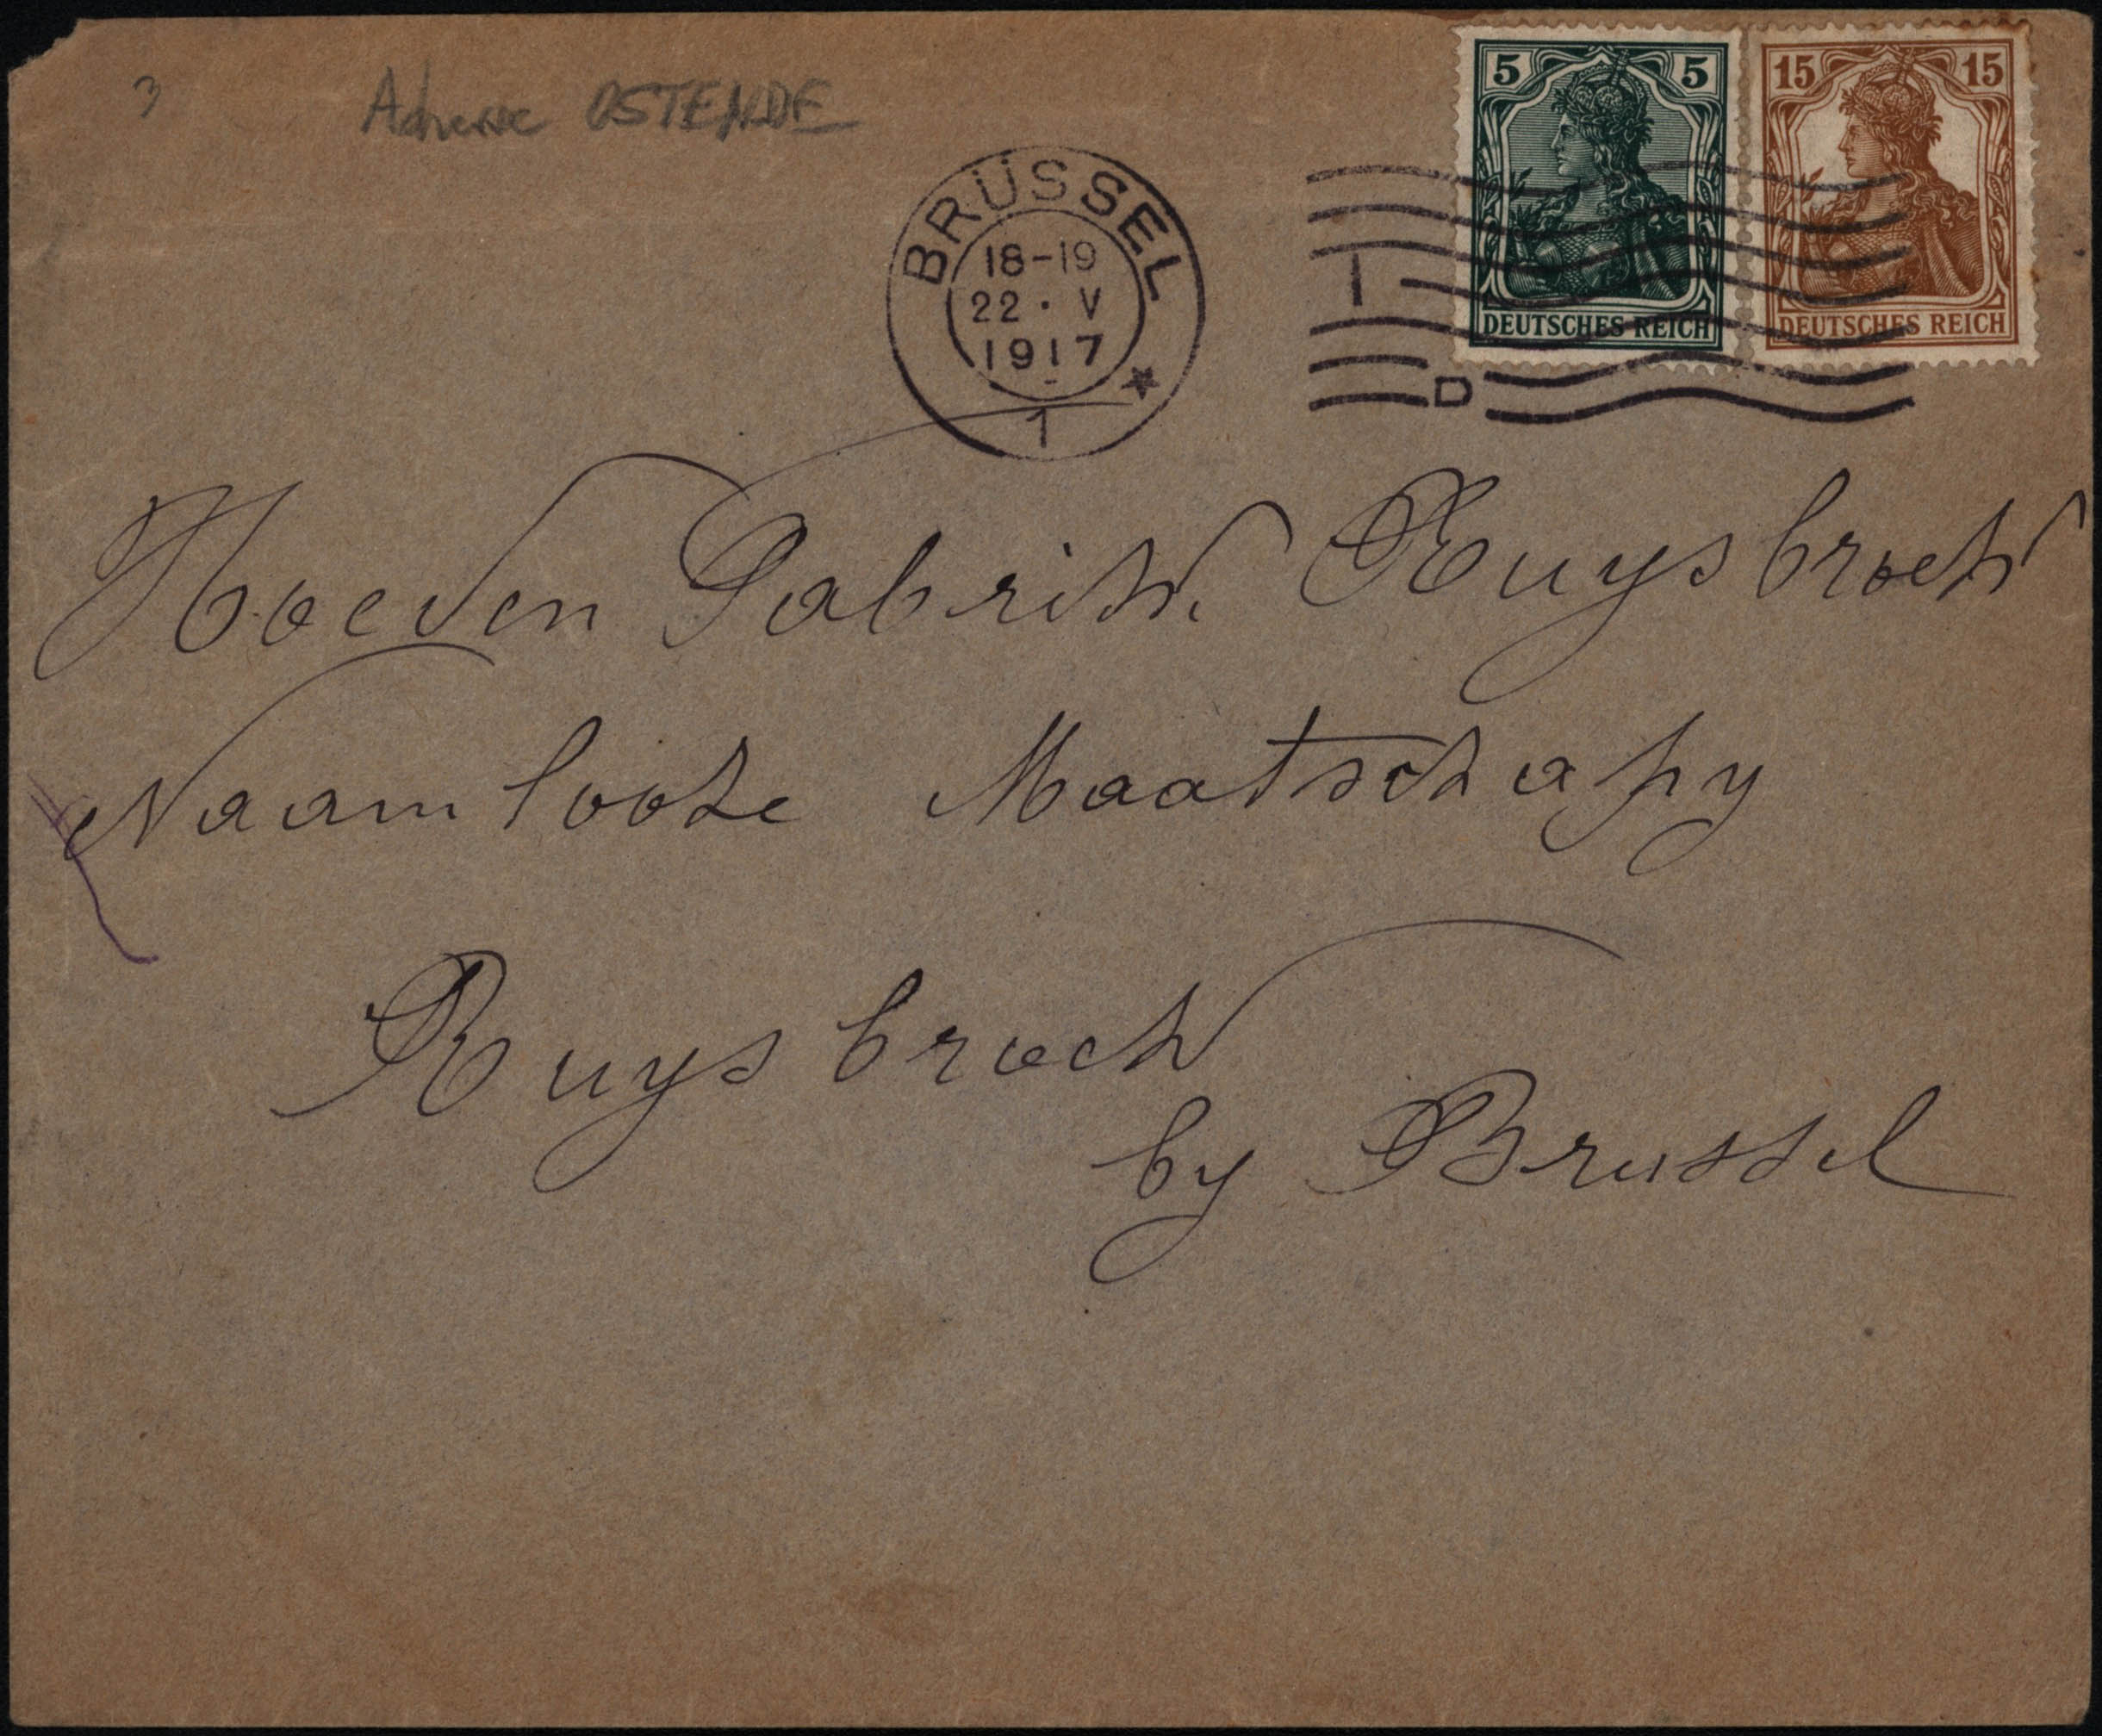 3
Adresse OSTENDE
BRÜSSEL
18-19
22 · V
1917
1
D
5 5
DEUTSCHES REICH
15 15
DEUTSCHES REICH
Hoeden Fabriek Ruysbroek
Naamlooze Maatschapy
Ruysbroek
by Brussel